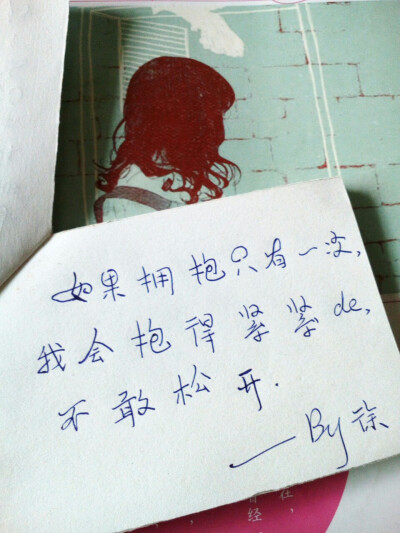 如果拥抱只有一次,
我会抱得紧紧de,
不敢松开.
——By徐
在,
经